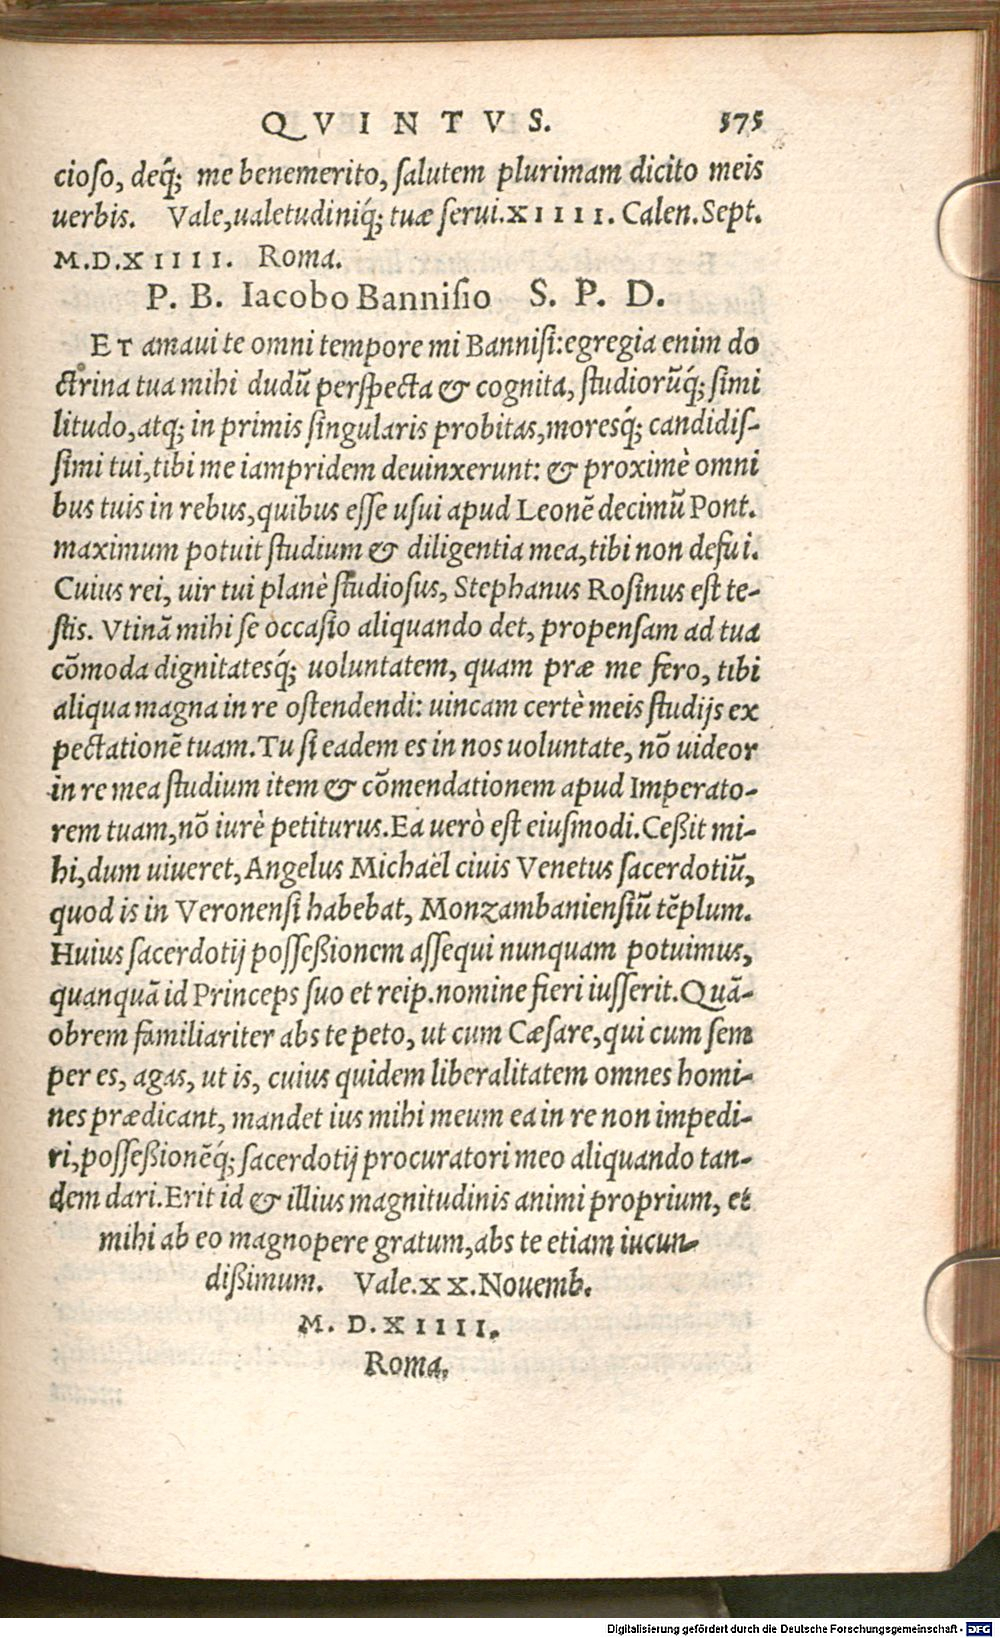 QVINTVS. 575
cioso, deq́; me benemerito, salutem plurimam dicito meis
uerbis. Vale,ualetudiniq́; tuæ serui.XIIII. Calen.Sept.
M.D.XIIII. Roma.
P. B. Iacobo Bannisio S. P. D.
ET amaui te omni tempore mi Bannisi:egregia enim do
ctrina tua mihi dudũ perspecta & cognita, studiorũq́; simi
litudo,atq; in primis singularis probitas,moresq́; candidis-
simi tui,tibi me iampridem deuinxerunt: & proximè omni
bus tuis in rebus,quibus esse usui apud Leonẽ decimũ Pont.
maximum potuit studium & diligentia mea,tibi non defui.
Cuius rei, uir tui planè studiosus, Stephanus Rosinus est te-
stis. Vtinã mihi se occasio aliquando det, propensam ad tua
cõmoda dignitatesq́; uoluntatem, quam præ me fero, tibi
aliqua magna in re ostendendi: uincam certè meis studijs ex
pectationẽ tuam.Tu si eadem es in nos uoluntate, nõ uideor
in re mea studium item & cõmendationem apud Imperato-
rem tuam,nõ iurè petiturus.Ea uerò est eiusmodi.Ceßit mi-
hi,dum uiueret,Angelus Michaël ciuis Venetus sacerdotiũ,
quod is in Veronensi habebat, Monzambaniensiũ tẽplum.
Huius sacerdotij posseßionem assequi nunquam potuimus,
quanquã id Princeps suo et reip.nomine fieri iusserit.Quã-
obrem familiariter abs te peto, ut cum Cæsare,qui cum sem
per es, agas, ut is, cuius quidem liberalitatem omnes homi-
nes prædicant, mandet ius mihi meum ea in re non impedi-
ri,posseßionẽq́; sacerdotij procuratori meo aliquando tan-
dem dari.Erit id & illius magnitudinis animi proprium, et
mihi ab eo magnopere gratum,abs te etiam iucun-
dißimum. Vale.XX.Nouemb.
M.D.XIIII.
Roma.
Digitalisierung gefördert durch die Deutsche Forschungsgemeinschaft - DFG